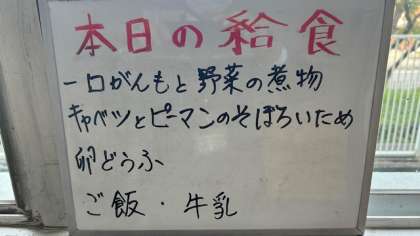 本日の給食
一口がんもと野菜の煮物
キャベツとピーマンのそぼろいため
卵どうふ
ご飯・牛乳